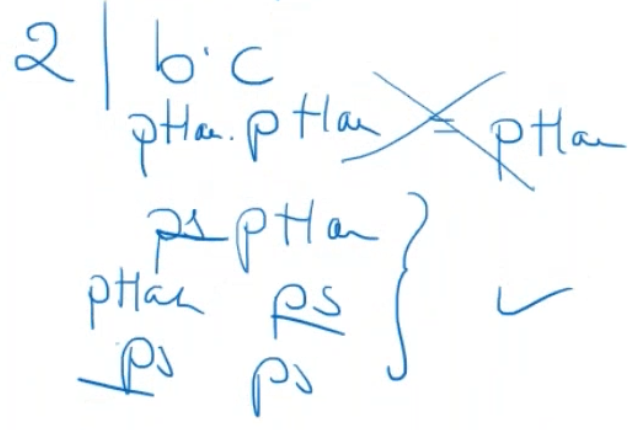 2 | b·c
pHar. pHar = pHar
ps pHar
pHar ps
ps ps